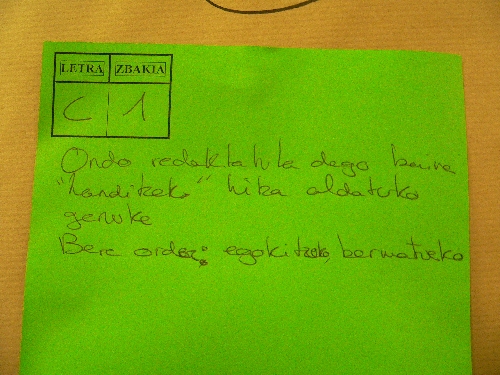 LETRA ZBAKIA
C 1
Ondo redaktatuta dago baina
"handitzeko" hitza aldatuko
genuke
Bere ordez: egokitzeko, bermatzeko